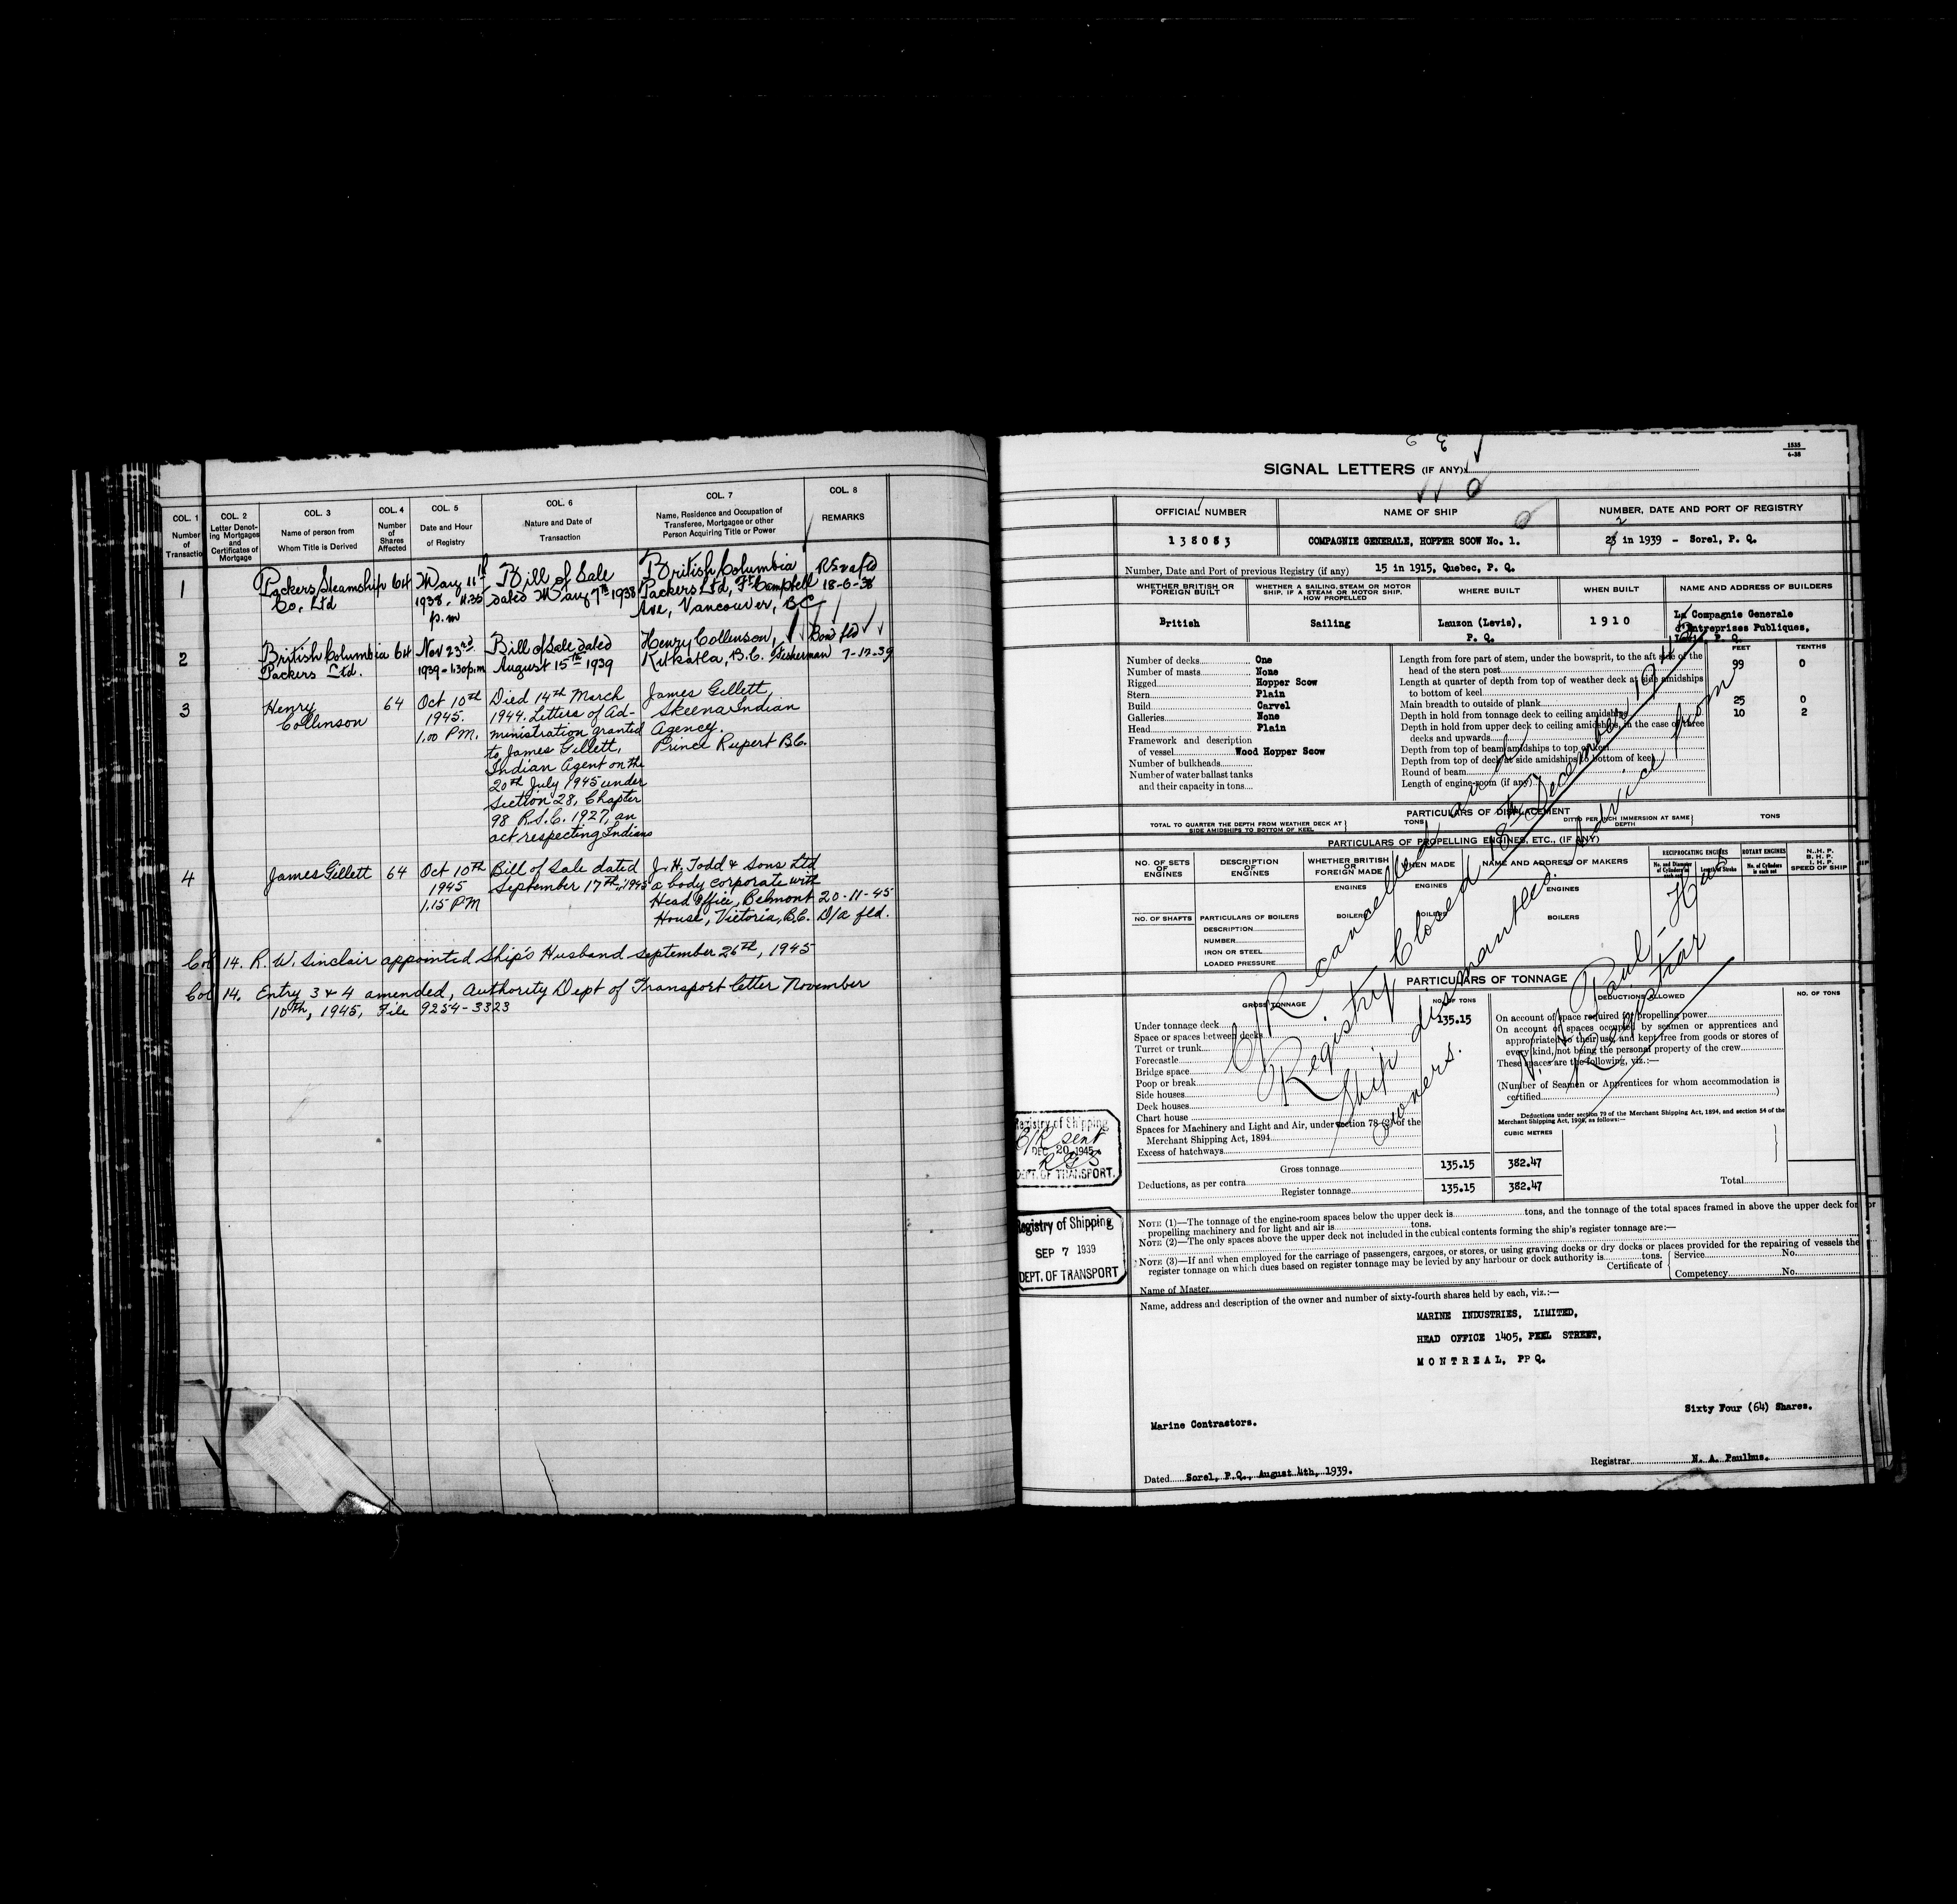 COL. 1
Number
of
Transaction
COL. 2
Letter Denot-
ing Mortgages
and
Certificates of
Mortgage
COL. 3
Name of person from
Whom Title is Derived
COL. 4
Number
of
Shares
Affected
COL. 5
Date and Hour
of Registry
COL. 6
Nature and Date of
Transaction
COL. 7
Name, Residence and Occupation of
Transferee, Mortgagee or other
Person Acquiring Title or Power
COL. 8
REMARKS
1
Packers Steamship
Co. Ltd
64
May 11th
1938. 11.35
p.m
Bill of Sale
dated May 7th 1938
British Columbia
Packers Ltd, Ft Campbell
Ave, Vancouver, B C
18-6-38
2
British Columbia
Packers Ltd.
64
Nov 23rd
1939 - 1.30 p.m
Bill of Sale dated
August 15th 1939
Henry Collinson,
Kitkatla, B.C. Fisherman
7-12-39
3
Henry
Collinson
64
Oct 10th
1945.
1.00 P.M.
Died 14th March
1944. Letters of Ad-
ministration granted
to James Gillett,
Indian Agent on the
20th July 1945 under
Section 28, Chapter
98 R.S.C. 1927, an
act respecting Indians
James Gillett,
Skeena Indian
Agency.
Prince Rupert B.C.
4
James Gillett
64
Oct 10th
1945
1.15 PM
Bill of Sale dated
September 17th, 1945
J. H. Todd & Sons Ltd
a body corporate with
Head Office, Belmont
House, Victoria, B.C.
20-11-45
D/a fld.
Col 14. R. W. Sinclair appointed Ship's Husband September 26th, 1945
Col 14. Entry 3 & 4 amended, Authority Dept of Transport letter November
10th, 1945, File 9254-3323
1535
6-38
SIGNAL LETTERS (IF ANY)
OFFICIAL NUMBER
NAME OF SHIP
NUMBER, DATE AND PORT OF REGISTRY
138083
COMPAGNIE GENERALE, HOPPER SCOW No. 1.
in 1939 - Sorel, P. Q.
Number, Date and Port of previous Registry (if any) 15 in 1915, Quebec, P. Q.
WHETHER BRITISH OR
FOREIGN BUILT
WHETHER A SAILING, STEAM OR MOTOR
SHIP, IF A STEAM OR MOTOR SHIP,
HOW PROPELLED
WHERE BUILT
WHEN BUILT
NAME AND ADDRESS OF BUILDERS
British
Sailing
Lauzon (Levis),
P. Q.
1910
La Compagnie Generale
d'Entreprises Publiques,
FEET
TENTHS
Number of decks One
Number of masts None
Rigged Hopper Scow
Stern Plain
Build Carvel
Galleries None
Head Plain
Framework and description
of vessel Wood Hopper Scow
Number of bulkheads
Number of water ballast tanks
and their capacity in tons
Length from fore part of stem, under the bowsprit, to the aft side of the
head of the stern post 99 0
Length at quarter of depth from top of weather deck at side amidships
to bottom of keel
Main breadth to outside of plank 25 0
Depth in hold from tonnage deck to ceiling amidships 10 2
Depth in hold from upper deck to ceiling amidships, in the case of three
decks and upwards
Depth from top of beam amidships to top of keel
Depth from top of deck at side amidships to bottom of keel
Round of beam
Length of engine-room (if any)
PARTICULARS OF DISPLACEMENT
TOTAL TO QUARTER THE DEPTH FROM WEATHER DECK AT
SIDE AMIDSHIPS TO BOTTOM OF KEEL
TONS
DITTO PER INCH IMMERSION AT SAME
DEPTH
TONS
PARTICULARS OF PROPELLING ENGINES, ETC., (IF ANY)
NO. OF SETS
OF
ENGINES
DESCRIPTION
OF
ENGINES
WHETHER BRITISH
OR
FOREIGN MADE
WHEN MADE
NAME AND ADDRESS OF MAKERS
RECIPROCATING ENGINES
No. and Diameter
of Cylinders in
each set
Length of Stroke
ROTARY ENGINES
No. of Cylinders
in each set
N. H. P.
B. H. P.
I. H. P.
SPEED OF SHIP
ENGINES
ENGINES
ENGINES
NO. OF SHAFTS
PARTICULARS OF BOILERS
BOILERS
BOILERS
BOILERS
DESCRIPTION
NUMBER
IRON OR STEEL
LOADED PRESSURE
PARTICULARS OF TONNAGE
GROSS TONNAGE
NO. OF TONS
DEDUCTIONS ALLOWED
NO. OF TONS
Under tonnage deck 135.15
Space or spaces between decks
Turret or trunk
Forecastle
Bridge space
Poop or break
Side houses
Deck houses
Chart house
Spaces for Machinery and Light and Air, under section 78 (2) of the
Merchant Shipping Act, 1894
Excess of hatchways
CUBIC METRES
Gross tonnage 135.15 382.47
Deductions, as per contra
Register tonnage 135.15 382.47
On account of space required for propelling power
On account of spaces occupied by seamen or apprentices and
appropriated to their use, and kept free from goods or stores of
every kind, not being the personal property of the crew
These spaces are the following, viz.:—
(Number of Seamen or Apprentices for whom accommodation is
certified )
Deductions under section 79 of the Merchant Shipping Act, 1894, and section 54 of the
Merchant Shipping Act, 1906, as follows:—
Total
C/R cancelled and
Registry Closed 18th December, 1945.
Ship dismantled. Advice from
owners.
N. A. Paul-Hus
Registrar
Registry of Shipping
C/R sent
DEC 20 1945
DEPT. OF TRANSPORT.
Registry of Shipping
SEP 7 1939
DEPT. OF TRANSPORT
NOTE (1)—The tonnage of the engine-room spaces below the upper deck is tons, and the tonnage of the total spaces framed in above the upper deck for
propelling machinery and for light and air is tons.
NOTE (2)—The only spaces above the upper deck not included in the cubical contents forming the ship's register tonnage are:—
NOTE (3)—If and when employed for the carriage of passengers, cargoes, or stores, or using graving docks or dry docks or places provided for the repairing of vessels the
register tonnage on which dues based on register tonnage may be levied by any harbour or dock authority is tons.
Name of Master
Certificate of
Service No.
Competency No.
Name, address and description of the owner and number of sixty-fourth shares held by each, viz.:—
MARINE INDUSTRIES, LIMITED,
HEAD OFFICE 1405, PEEL STREET,
MONTREAL, PP Q.
Sixty Four (64) Shares.
Marine Contractors.
Dated Sorel, P.Q., August 4th, 1939.
Registrar N. A. Paulhus.